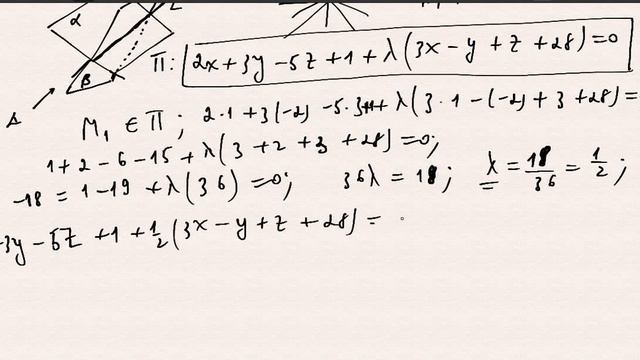 α
β
Δ
Π: 2x+3y-5z+1+λ(3x-y+z+28)=0
M₁ ∈ Π; 2·1+3(-2)-5·3+1+λ(3·1-(-2)+3+28)=
1+2-6-15+λ(3+2+3+28)=0;
-18=1-19+λ(36)=0; 36λ=18; λ=18/36=1/2;
3y-5z+1+1/2(3x-y+z+28)=